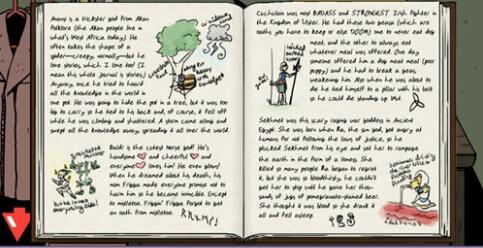 Anansi is a trickster god from Akan
Folklore (the Akan people live in
what's West Africa today). He
often takes the shape of a
spider—creepy, normally—but he
love stories, which I love too! (I
mean this whole journal is stories.)
Anyway, once he tried to hoard
all the knowledge in the world in
one pot. He was going to hide the pot in a tree, but it was too
big to carry so he tied it to his back and, of course, it fell off
while he was climbing and shattered. A storm came along and
swept all the knowledge away, spreading it all over the world.
Baldr is the cutest Norse god! He's
handsome and cheerful and
everyone loves him! He even glows!
When he dreamed about his death, his
mom Frigga made everyone promise not to
harm him so he became invincible. Except
to mistletoe. Friggin' Frigga forgot to get
an oath from mistletoe.
but he loves
everything else!
Cuchulain was most BADASS and STRONGEST Irish fighter in
the Kingdom of Ulster. He had these two geasa (which are
oaths you have to keep or else DOOM) one to never eat dog
meat, and the other to always eat
whatever meal was offered. One day
someone offered him a dog meat meal (poor
puppy) and he had to break a geas,
weakening him. Also when he was about to
die he tied himself to a pillar with his belt
so he could die standing up. Metal.
Sekhmet was this scary raging war goddess in Ancient
Egypt. She was born when Ra, the sun god, got angry at
humans for not following the laws of justice, so she
plucked Sekhmet from his eye and set her to rampage
the earth in the form of a lioness. She
killed so many people Ra began to regret
it, but she was so bloodthirsty, he couldn't
get her to stop until he gave her thou-
sands of jugs of pomegranate-stained beer.
She thought it was blood so she drank it
all and fell asleep.